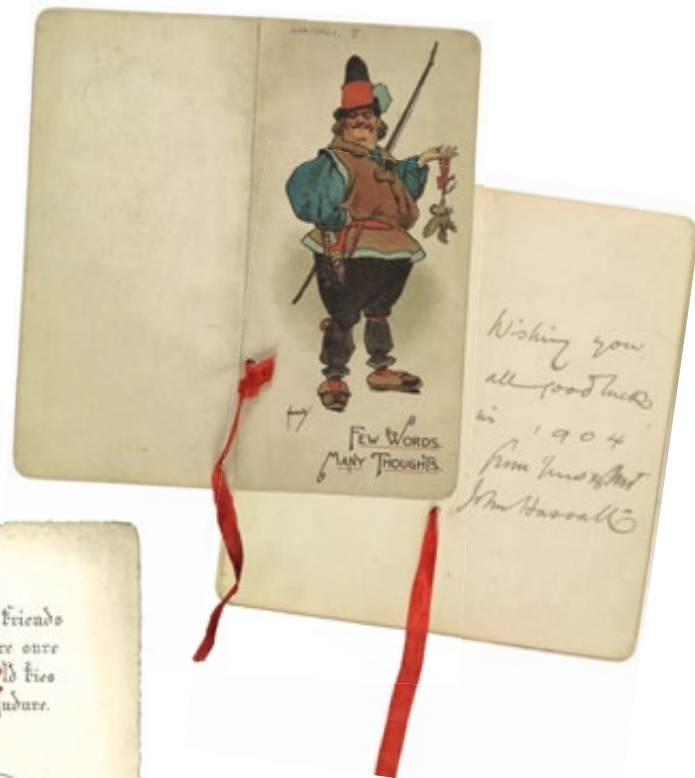 FEW WORDS.
MANY THOUGHTS.
Wishing you
all good luck
in 1904
from
John Hassall
Friends
re sure
ld ties
ndure.